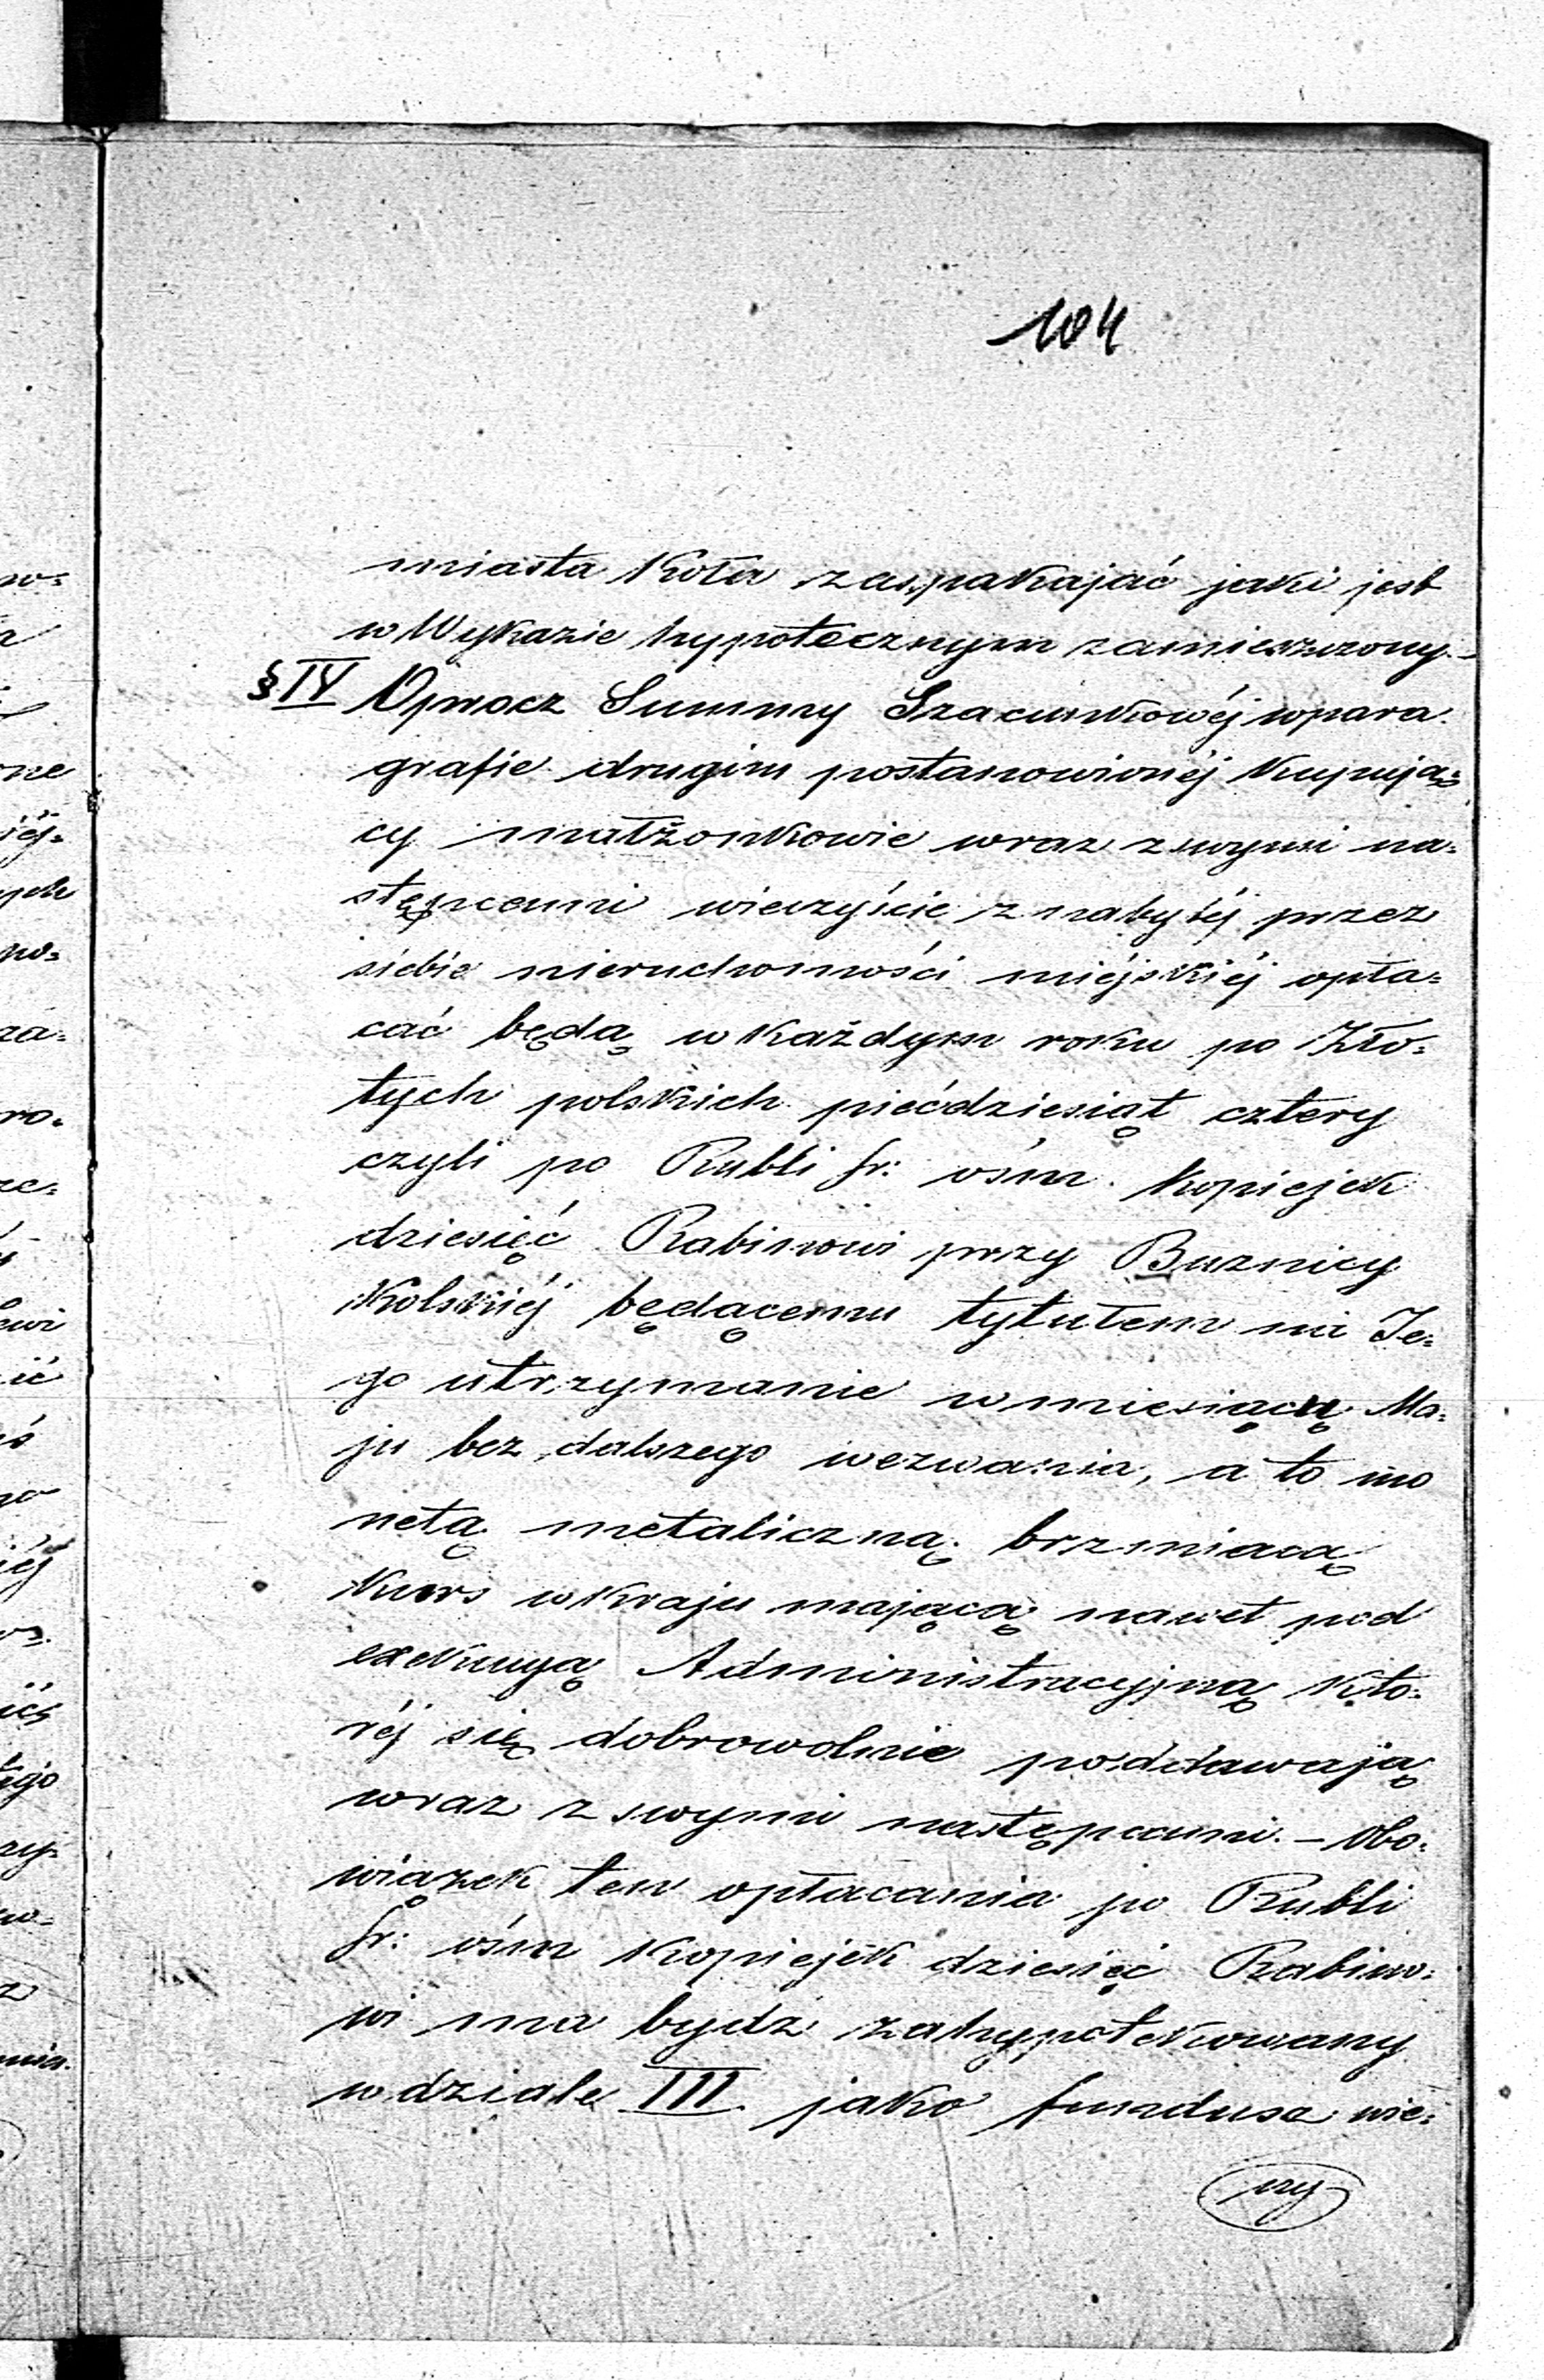 104
miasta Koła zaspakajać jaki jest
w Wykazie hypotecznym zamieszczony.-
§ IV Oprocz Summy Szacunkowéj w para
grafie drugim postanowionéj Kupują=
cy małżonkowie wraz z swymi na=
stępcami wieczyście z nabytéj przez
siebie nieruchomości miéjskiéj opła=
cać będą w każdym roku po Zło=
tych polskich piećdziesiąt cztery
czyli po Rubli sr: ośm Kopiejek
dziesięć Rabinowi przy Buznicy
Kolskiéj będącemu tytułem na Je=
go utrzymanie w miesiącu Ma=
ju bez dalszego wezwania, a to mo
netą metaliczną brzmiacą
Kurs w Kraju mającą nawet pod
exekucyą Administracyjną Któ=
réj się dobrowolnie poddawają
wraz z swymi następcami. - Obo=
wiązek ten opłacania po Rubli
sr: ośm Kopiejek dziesięć Rabino=
wi ma bydź zahypotekowany
w dziale III jako fundusz wie=
czy
ne
iéj=
ych
po=
za=
ro=
ze=
ić
iéj
ego